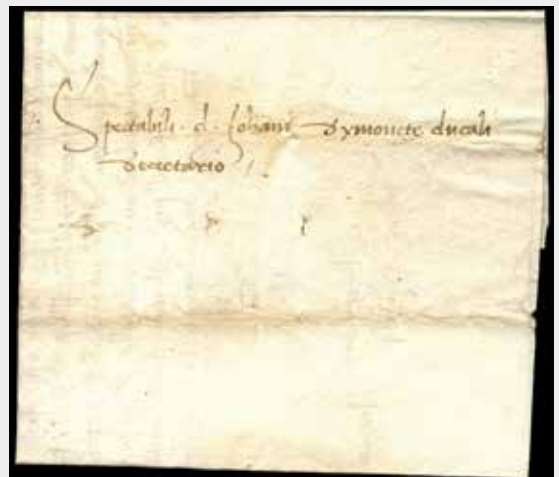 Spectabili · d · Johani Symonete ducali
Secretario